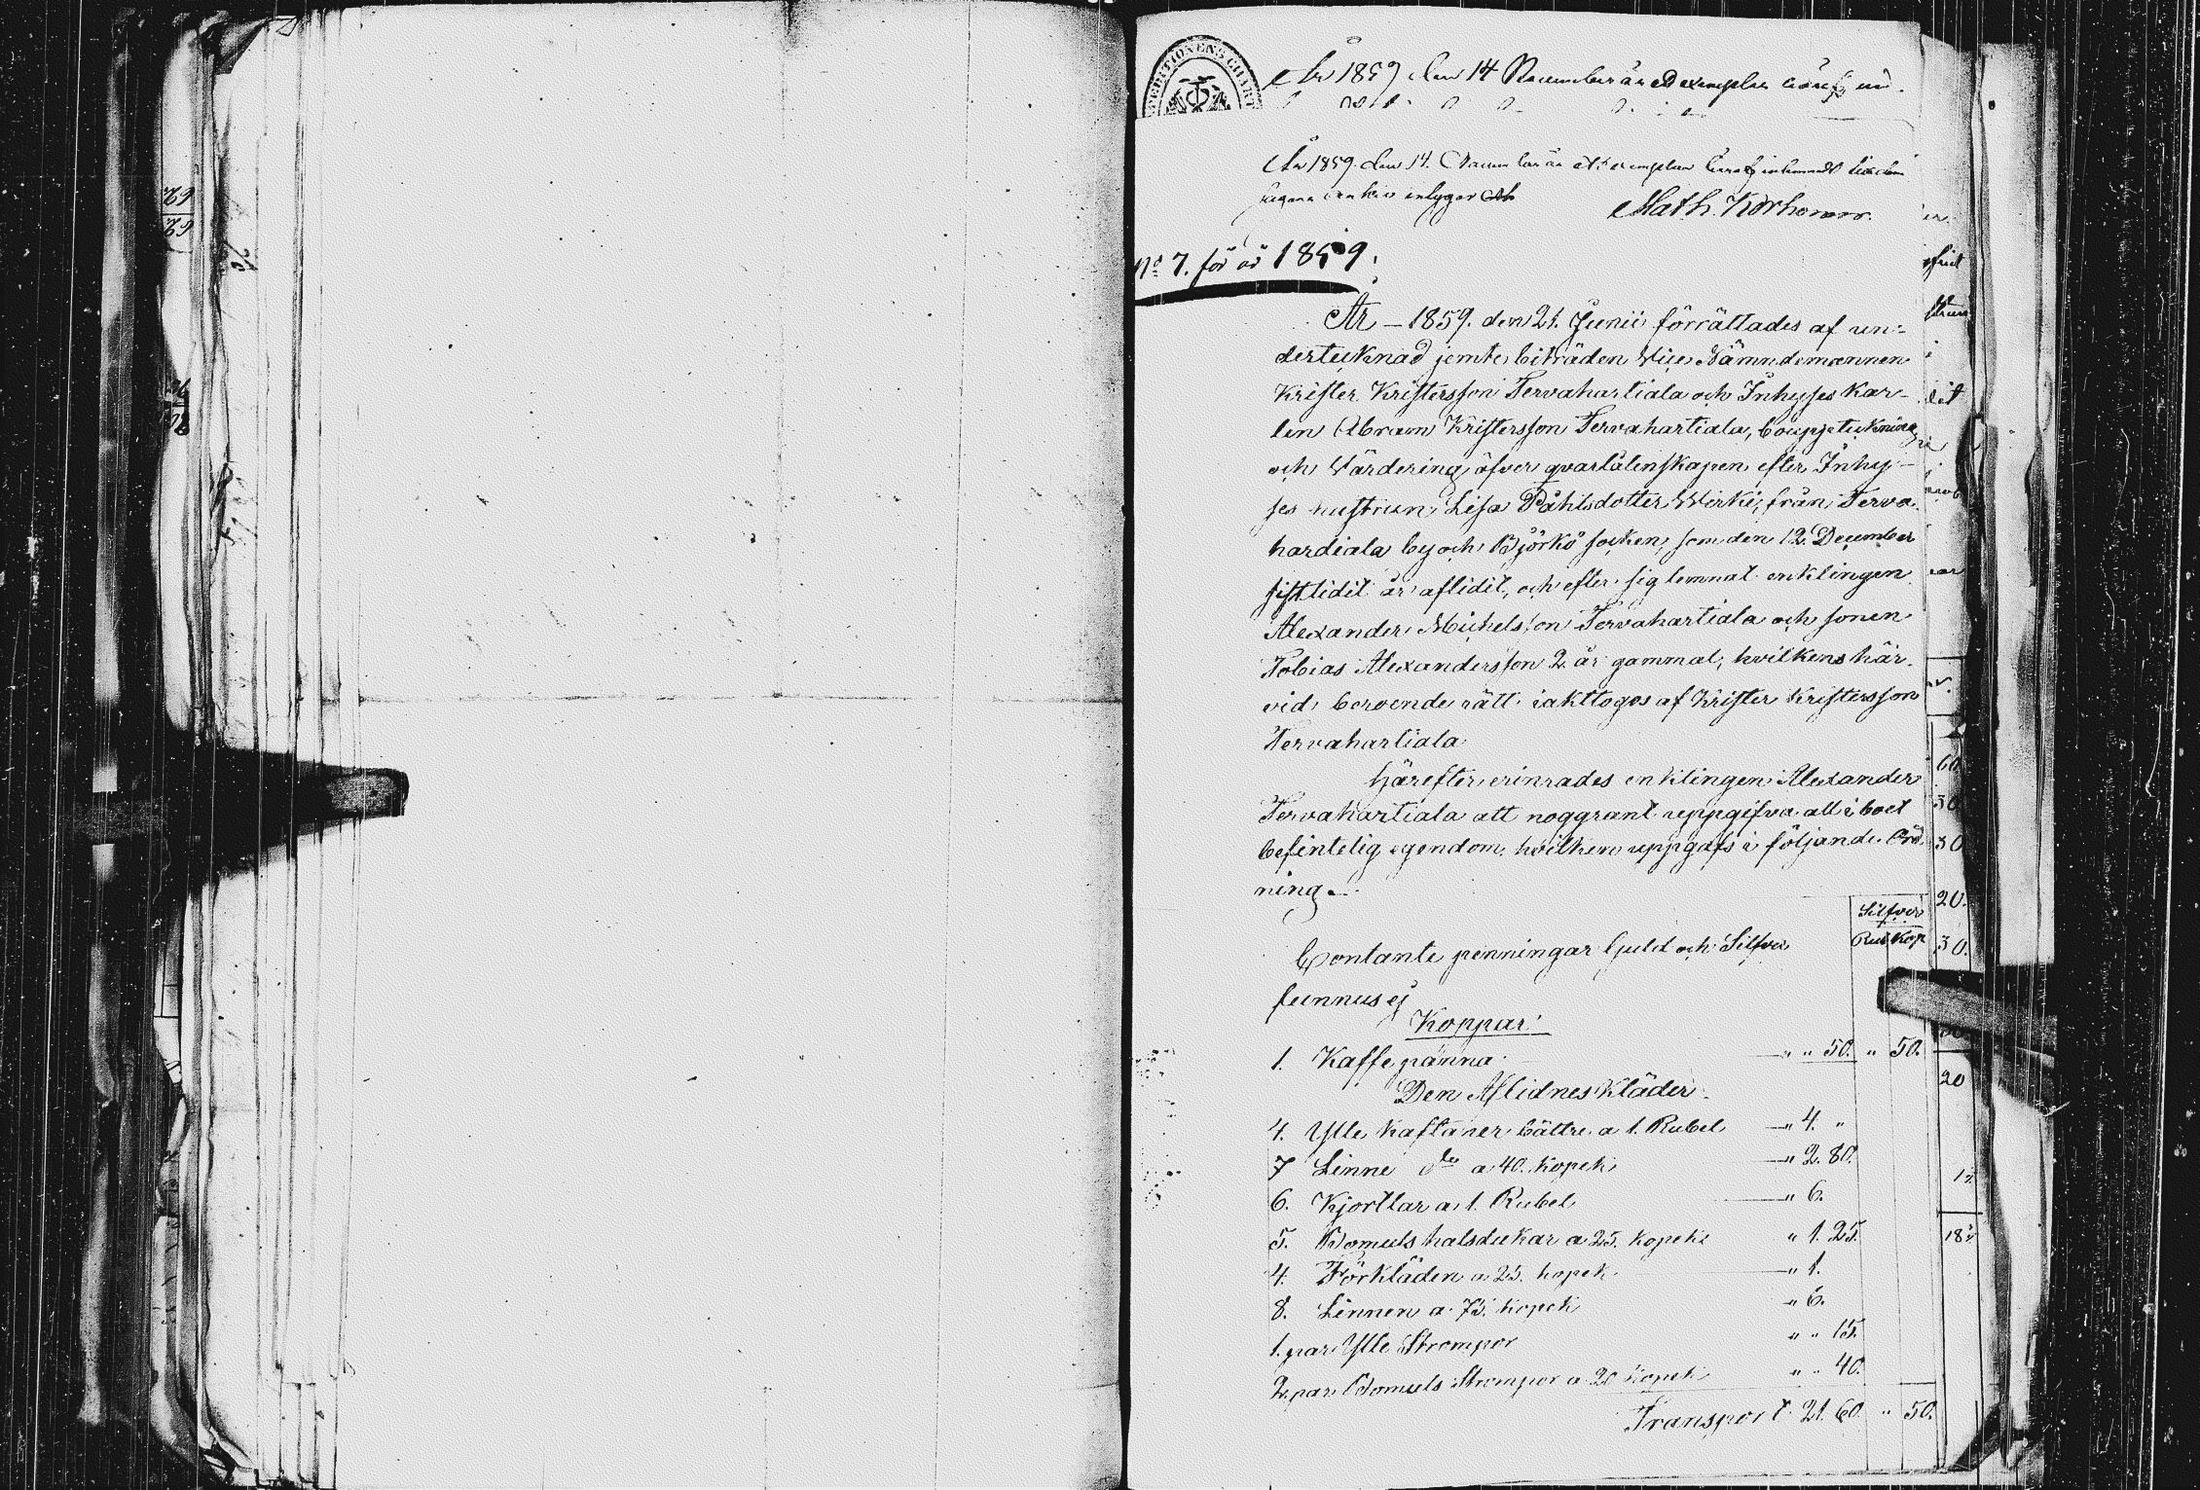 EXPEDITIONENS CHART
År 1859 den 14 December är ett exemplar häraf
År 1859. den 14. December är ett exemplar häraf inlemnadt
inlyger
Math. Korhonen
No 7. för år 1859.
År 1859. den 21. Junii förrättades af un-
dertecknad jemte biträden Vice Nämndemannen
Krister Kristersson Tervahartiala och Inhyses Kar-
len Abram Kristersson Tervahartiala, bouppteckning
och Värdering öfver qvarlåtenskapen efter Inhy-
ses hustrun Lisa Påhlsdotter Wirki, från Terva-
hardiala by och Björkö socken, som den 12 December
sistledit år aflidit, och efter sig lemnat enklingen
Alexander Michelsson Tervahartiala och sonen
Tobias Alexandersson 2 år gammal, hvilkens här-
vid beroende rätt iakttogos af Krister Kristersson
Tervahartiala
Härefter erinrades enklingen Alexander
Tervahartiala att noggrant uppgifva allt i boet
befintelig egendom, hvilken uppgafs i följande Ord-
ning.
Silfver
Rub Kop
Contante penningar Guld och Silfver
funnus ej
Koppar
1. Kaffe panna " " 50. " 50.
Den Aflidnes Kläder
4. Ylle Kaftaner bättre a 1. Rubel " 4. "
7 Linne do a 40. Kopek " 2. 80.
6. Kjortlar a 1. Rubel " 6.
5. Bomuls halsdukar a 25. Kopek " 1. 25.
4. Förkläden a 25. kopek " 1.
8. Linnen a 75. Kopek " 6.
1. par Ylle Strompor " " 15.
2. par Bomuls Strompor a 20 Kopek " " 40.
Transport 21. 60. " 50.